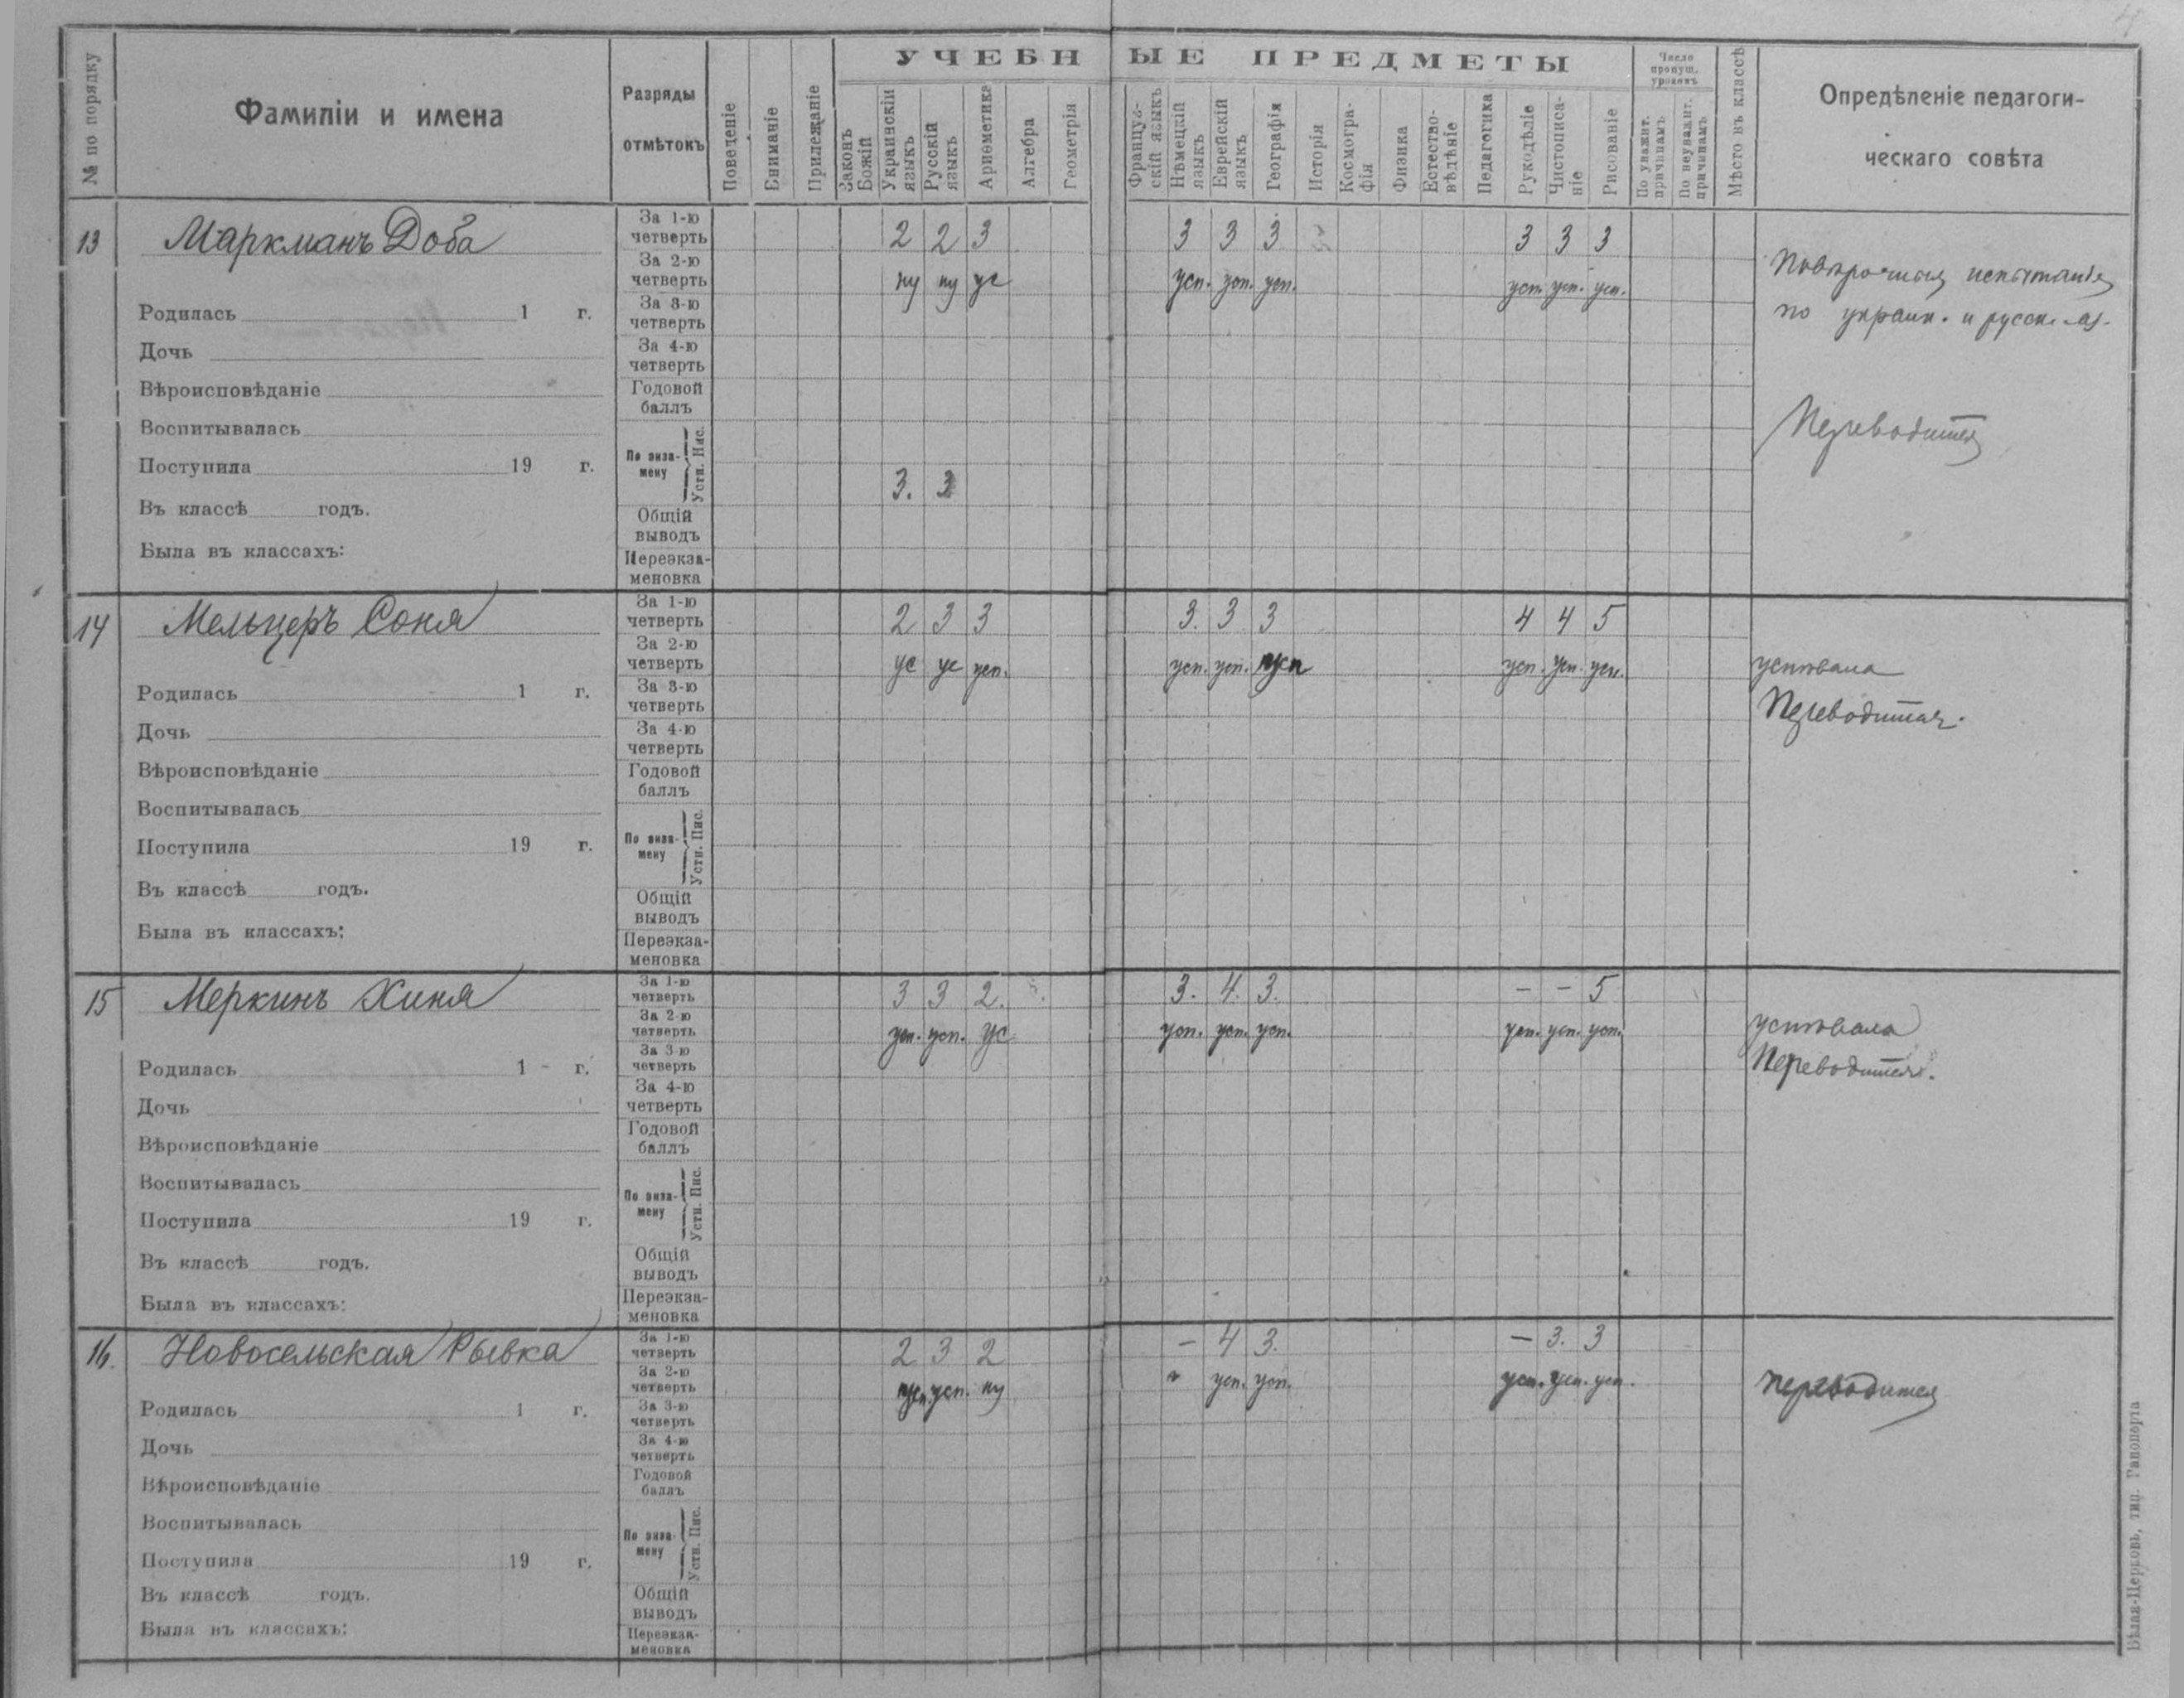 УЧЕБНЫЕ ПРЕДМЕТЫ
№ по порядку
Фамиліи и имена
Разряды отмѣтокъ
Поведеніе
Вниманіе
Прилежаніе
Законъ Божій
Украинскій языкъ
Русскій языкъ
Ариѳметика
Алгебра
Геометрія
Француз-скій языкъ
Нѣмецкій языкъ
Еврейскій языкъ
Географія
Исторія
Космогра-фія
Физика
Естество-вѣдѣніе
Педагогика
Рукодѣліе
Чистописа-ніе
Рисованіе
Число пропущ. уроковъ
По уважит. причинамъ
По неуважит. причинамъ
Мѣсто въ классѣ
Опредѣленіе педагоги-
ческаго совѣта
13 Маркманъ Доба
За 1-ю четверть 2 2 3 3 3 3 3 3 3
За 2-ю четверть ну ну ус усп. усп. усп. усп. усп. усп.
Повѣрочныя испытанія
по украин. и русск. яз.
Родилась 1 г.
За 3-ю четверть
Дочь
За 4-ю четверть
Вѣроисповѣданіе
Годовой баллъ
Переводится
Воспитывалась
Поступила 19 г.
По экза-мену Устн. Пис.
3. 3
Въ классѣ годъ.
Общій выводъ
Была въ классахъ:
Переэкза-меновка
14 Мельцеръ Соня
За 1-ю четверть 2 3 3 3. 3 3 4 4 5
За 2-ю четверть ус ус усп. усп. усп. усп усп. усп. усп.
успѣвала
Переводится.
Родилась 1 г.
За 3-ю четверть
Дочь
За 4-ю четверть
Вѣроисповѣданіе
Годовой баллъ
Воспитывалась
Поступила 19 г.
По экза-мену Устн. Пис.
Въ классѣ годъ.
Общій выводъ
Была въ классахъ:
Переэкза-меновка
15 Меркинъ Хиня
За 1-ю четверть 3 3 2. 3. 4. 3. – – 5
За 2-ю четверть усп. усп. ус усп. усп. усп. усп. усп. усп.
успѣвала
Переводится.
Родилась 1 г.
За 3-ю четверть
Дочь
За 4-ю четверть
Вѣроисповѣданіе
Годовой баллъ
Воспитывалась
Поступила 19 г.
По экза-мену Устн. Пис.
Въ классѣ годъ.
Общій выводъ
Была въ классахъ:
Переэкза-меновка
16. Новосельская Рывка
За 1-ю четверть 2 3 2 – 4 3. – 3. 3
За 2-ю четверть усп. усп. ну усп. усп. усп. усп. усп.
переводится
Родилась 1 г.
За 3-ю четверть
Дочь
За 4-ю четверть
Вѣроисповѣданіе
Годовой баллъ
Воспитывалась
Поступила 19 г.
По экза-мену Устн. Пис.
Въ классѣ годъ.
Общій выводъ
Была въ классахъ:
Переэкза-меновка
Бѣлая-Церковь, тип. Гапонорта